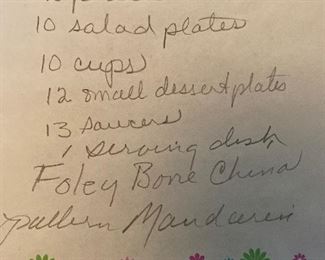 10 salad plates
10 cups
12 small dessert plates
13 saucers
1 serving dish
Foley Bone China
pattern Mandarin